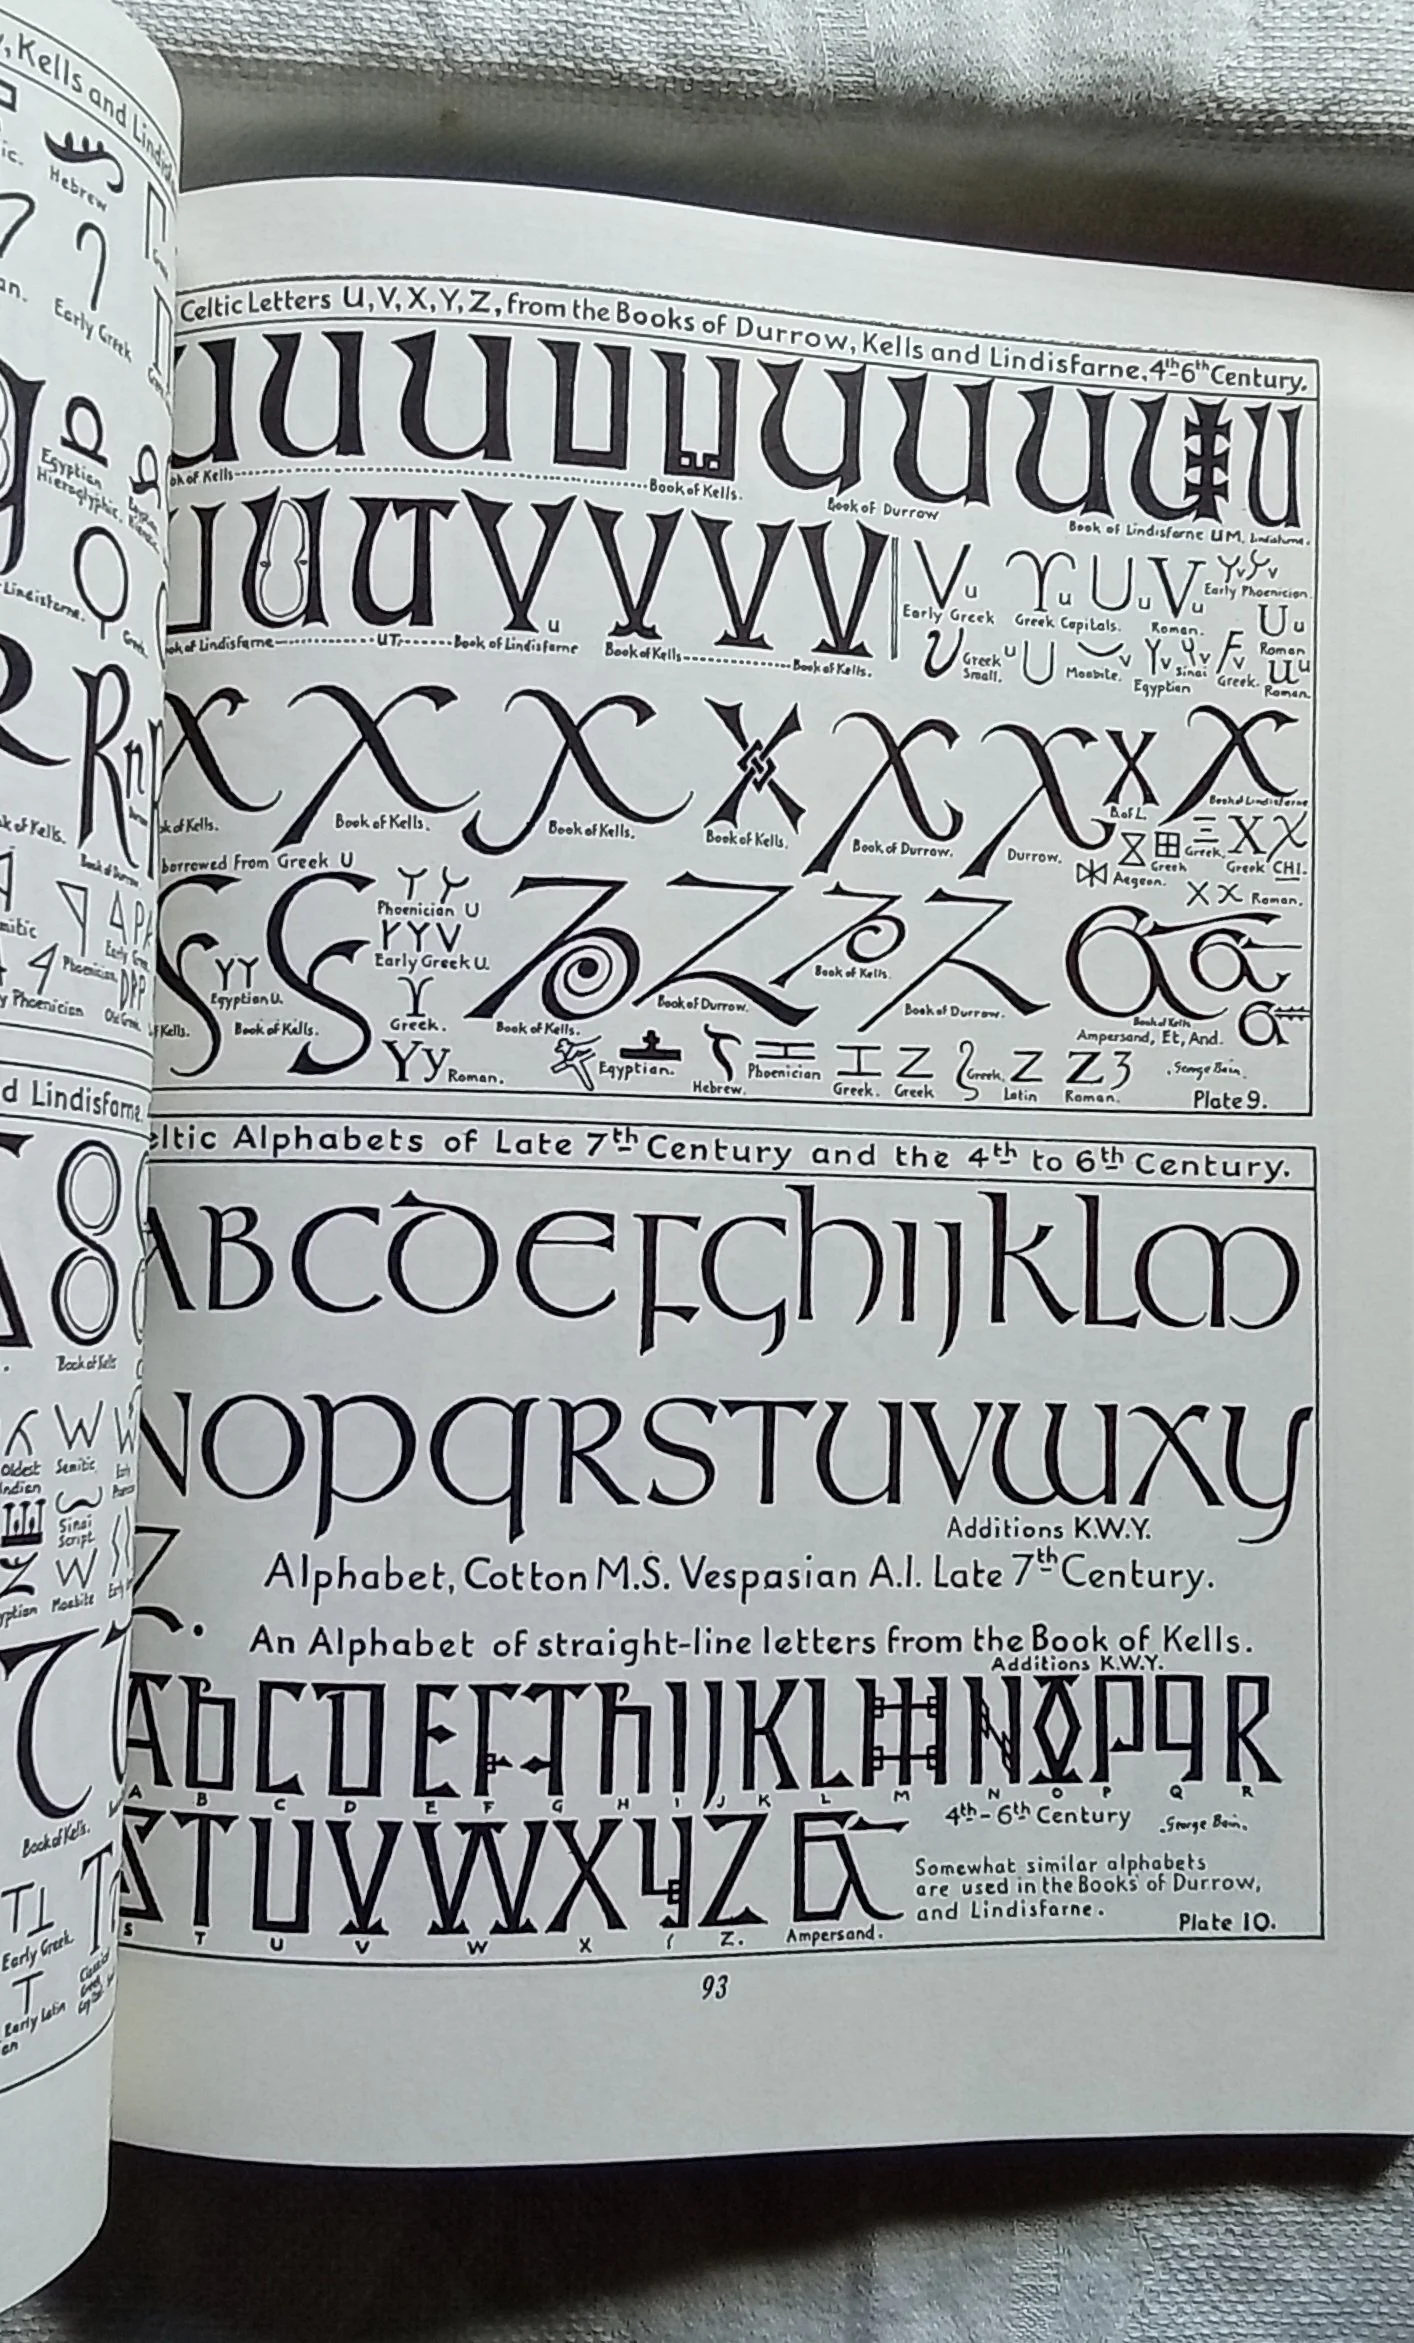 , Kells and Lindis
Hebrew
Early Greek
Egyptian
Hieroglyphic.
Lindisfarne.
Greek.
Rn
k of Kells.
Book of Durrow.
mitic
Phoenician.
Early Greek
y Phoenician
Old Greek
d Lindisfarne.
8
Book of Kells
Oldest
Indian
W
Semitic
Sinai
Script.
W
yptian
Moabite
Book of Kells.
Early Greek.
T
Early Latin
Celtic Letters U, V, X, Y, Z, from the Books of Durrow, Kells and Lindisfarne. 4th-6th Century.
U U U U U U U U U M U
ok of Kells
Book of Kells.
Book of Durrow
Book of Lindisfarne UM. Lindisfarne.
U U UT V V V V
ok of Lindisfarne
UT
Book of Lindisfarne
u
Book of Kells
Book of Kells.
V u
Early Greek
ϒ u U u
Greek Capitals.
V u
Roman.
Y v Y v
Early Phoenician.
U u
Roman
U
Greek
Small.
u U
Moabite.
v
Y v
Egyptian
Y v
Sinai
F v
Greek.
U u
Roman.
X X X X X X X X
k of Kells.
Book of Kells.
Book of Kells.
Book of Kells.
Book of Durrow.
Durrow.
B.of L.
Book of Lindisfarne
Aegean.
Greek
Ξ
Greek.
X χ
Greek CHI.
X x Roman.
borrowed from Greek U
f Kells.
YY
Egyptian U.
Book of Kells.
Phoenician U
YYV
Early Greek U.
ϒ
Greek.
Yy Roman.
Z Z Z Z
Book of Kells.
Book of Durrow.
Book of Kells.
Book of Durrow.
Book of Kells
Ampersand, Et, And.
Egyptian.
Hebrew.
Phoenician
Greek.
Z
Greek
Greek.
Z
Latin
Z 3
Roman.
George Bain.
Plate 9.
eltic Alphabets of Late 7th Century and the 4th to 6th Century.
A B C D E F G h I J K L M
N O P Q R S T U V W X Y
Additions K.W.Y.
Z.
Alphabet, Cotton M.S. Vespasian A.I. Late 7th Century.
An Alphabet of straight-line letters from the Book of Kells.
Additions K.W.Y.
A b C D E F G h I J K L M N O P Q R
A B C D E F G H I J K L M N O P Q R
S T U V W X Y Z &
S T U V W X Y Z. Ampersand.
4th-6th Century
George Bain.
Somewhat similar alphabets
are used in the Books of Durrow,
and Lindisfarne.
Plate 10.
93